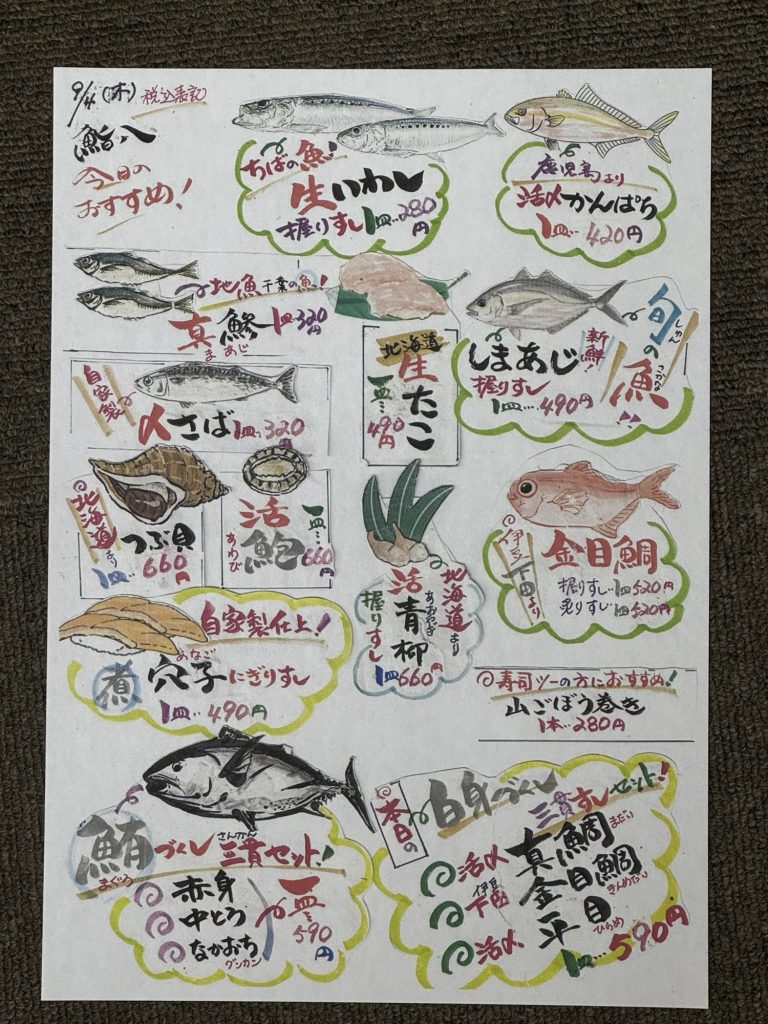 9/4(木) 税込表記
鮨八
今日の
おすすめ!
ちばの魚!
生いわし
握りすし 1皿…280円
鹿児島より
活〆かんぱち
1皿…420円
地魚 千葉の魚っ!
真鯵 1皿…320円
まあじ
自家製
〆さば 1皿…320円
北海道
生たこ
一皿…490円
旬の魚
しゅん
さかな
しまあじ
新鮮!
握りすし
1皿…490円
北海道より
つぶ貝
1皿…660円
活鮑
あわび
一皿…660円
北海道より
活青柳
あおやぎ
握りすし
1皿660円
伊豆下田より
金目鯛
握りすし…1皿520円
炙りすし…1皿520円
自家製仕上!
あなご
煮穴子にぎりすし
1皿…490円
寿司ツーの方におすすめ!
山ごぼう巻き
1本…280円
さんかん
鮪づくし三貫セット!
まぐろ
赤身
中とろ
なかおち
グンカン
一皿…590円
本日の
白身づくし
三貫すしセット!
活〆 真鯛 まだい
伊豆下田 金目鯛 きんめだい
活〆 平目 ひらめ
1皿…590円